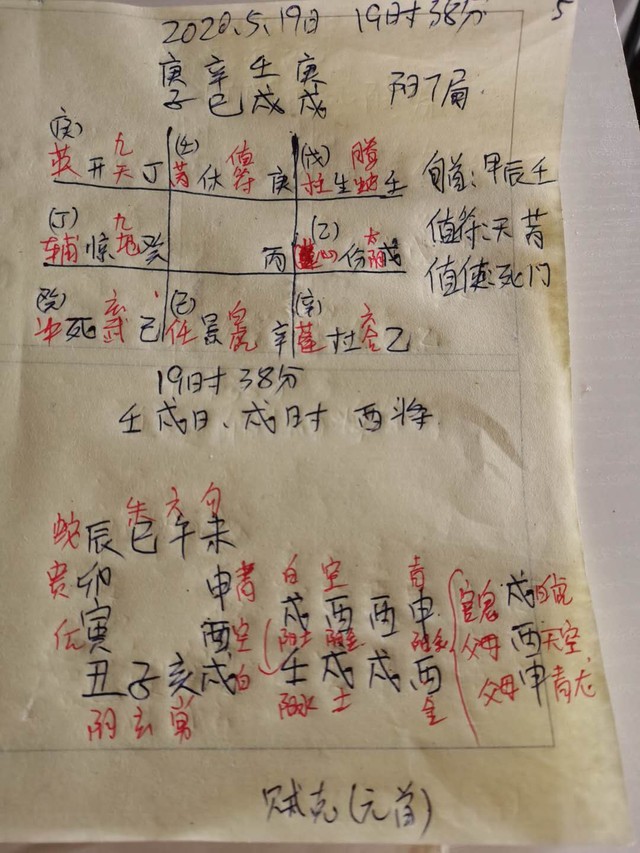 2020.5.19日 19时38分 5
庚辛壬庚
子巳戌戌 阴7局
(庚) 九 (壬) 值 (戊) 腾
英开天丁 芮休符庚 柱生蛇壬 旬首:甲辰壬
(丁) 九 (乙) 太 值符:天芮
辅惊地癸 丙 心伤阴戊 值使:死门
(癸) 玄 (己) 白 (辛) 六
冲死武己 任景虎辛 蓬杜合乙
19时38分
壬戌日、戌时 酉将
朱六勾
蛇辰巳午未
贵卯 申青 白空 青 官鬼戌白虎
后寅 酉空 戌酉酉申 父母酉天空
阳土
丑子亥戌白 壬戌戌酉 父母申青龙
阴玄常 阳水 土 金
贼克(元首)